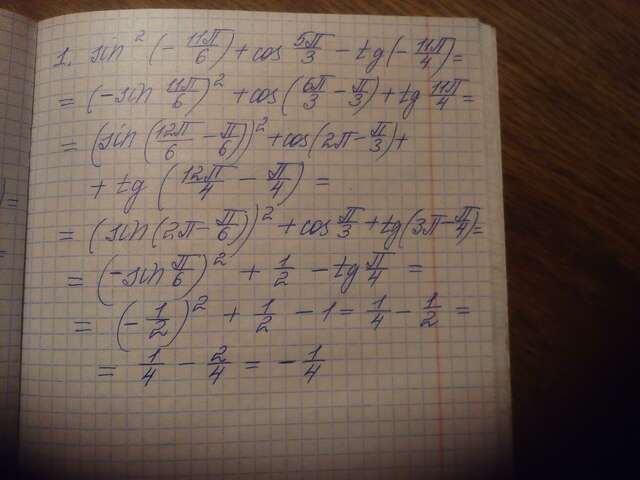 1. sin² (- 11π/6) + cos 5π/3 - tg(- 11π/4) =
= (-sin 11π/6)² + cos(6π/3 - π/3) + tg 11π/4 =
= (sin(12π/6 - π/6))² + cos(2π - π/3) +
+ tg (12π/4 - π/4) =
= (sin(2π - π/6))² + cos π/3 + tg(3π - π/4) =
= (-sin π/6)² + 1/2 - tg π/4 =
= (- 1/2)² + 1/2 - 1 = 1/4 - 1/2 =
= 1/4 - 2/4 = - 1/4